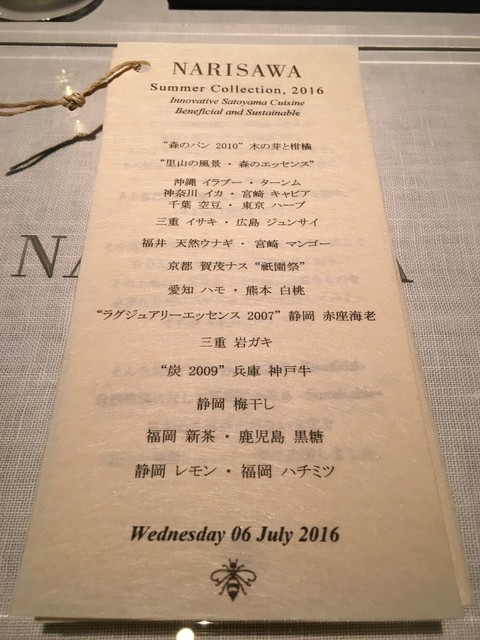 NARISAWA
Summer Collection, 2016
Innovative Satoyama Cuisine
Beneficial and Sustainable
“森のパン 2010” 木の芽と柑橘
“里山の風景・森のエッセンス”
沖縄 イラブー・ターンム
神奈川 イカ・宮崎 キャビア
千葉 空豆・東京 ハーブ
三重 イサキ・広島 ジュンサイ
福井 天然ウナギ・宮崎 マンゴー
京都 賀茂ナス “祇園祭”
愛知 ハモ・熊本 白桃
“ラグジュアリーエッセンス 2007” 静岡 赤座海老
三重 岩ガキ
“炭 2009” 兵庫 神戸牛
静岡 梅干し
福岡 新茶・鹿児島 黒糖
静岡 レモン・福岡 ハチミツ
Wednesday 06 July 2016